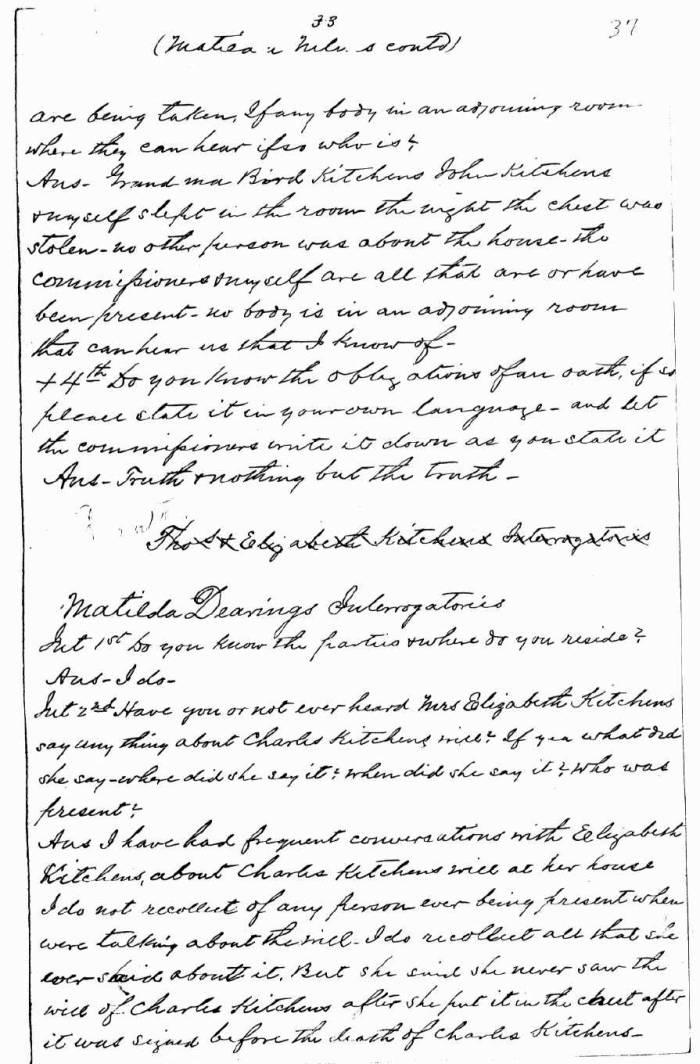 33
37
(Matilda Mc s contd)
are being taken, If any body in an adjoining room
where they can hear if so who is?
Ans- Grand ma Bird Kitchens John Kitchens
& myself slept in the room the night the chest was
stolen- no other person was about the house- the
commissioners & myself are all that are or have
been present- no body is in an adjoining room
that can hear us that I know of-
+ 4th Do you know the obligations of an oath, if so
please state it in your own language- and let
the commissioners write it down as you state it
Ans- Truth & nothing but the truth-
Thos & Elizabeth Kitchens Interrogatories
Matilda Dearings Interrogatories
Int 1st Do you know the parties & where do you reside?
Ans- I do-
Int 2nd Have you or not ever heard Mrs Elizabeth Kitchens
say any thing about Charles Kitchens will? If yea what did
she say- where did she say it? when did she say it? who was
present?
Ans I have had frequent conversations with Elizabeth
Kitchens, about Charles Kitchens will at her house
I do not recollect of any person ever being present when
were talking about the will- I do recollect all that she
ever said about it. But she said she never saw the
will of Charles Kitchens after she put it in the chest after
it was signed before the death of Charles Kitchens-